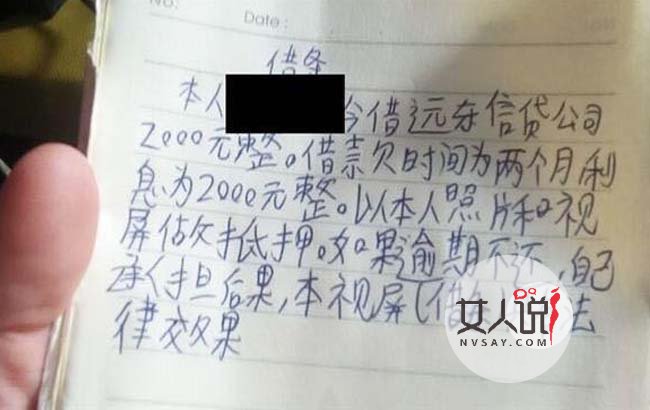 No:
Date:
借条
本人 今借远东信贷公司
2000元整。借款时间为两个月利
息为2000元整。以本人照片和视
屏做抵押。如果逾期不还，自己
承担后果，本视屏（借 法
律效果
女人说
NVSAY.COM